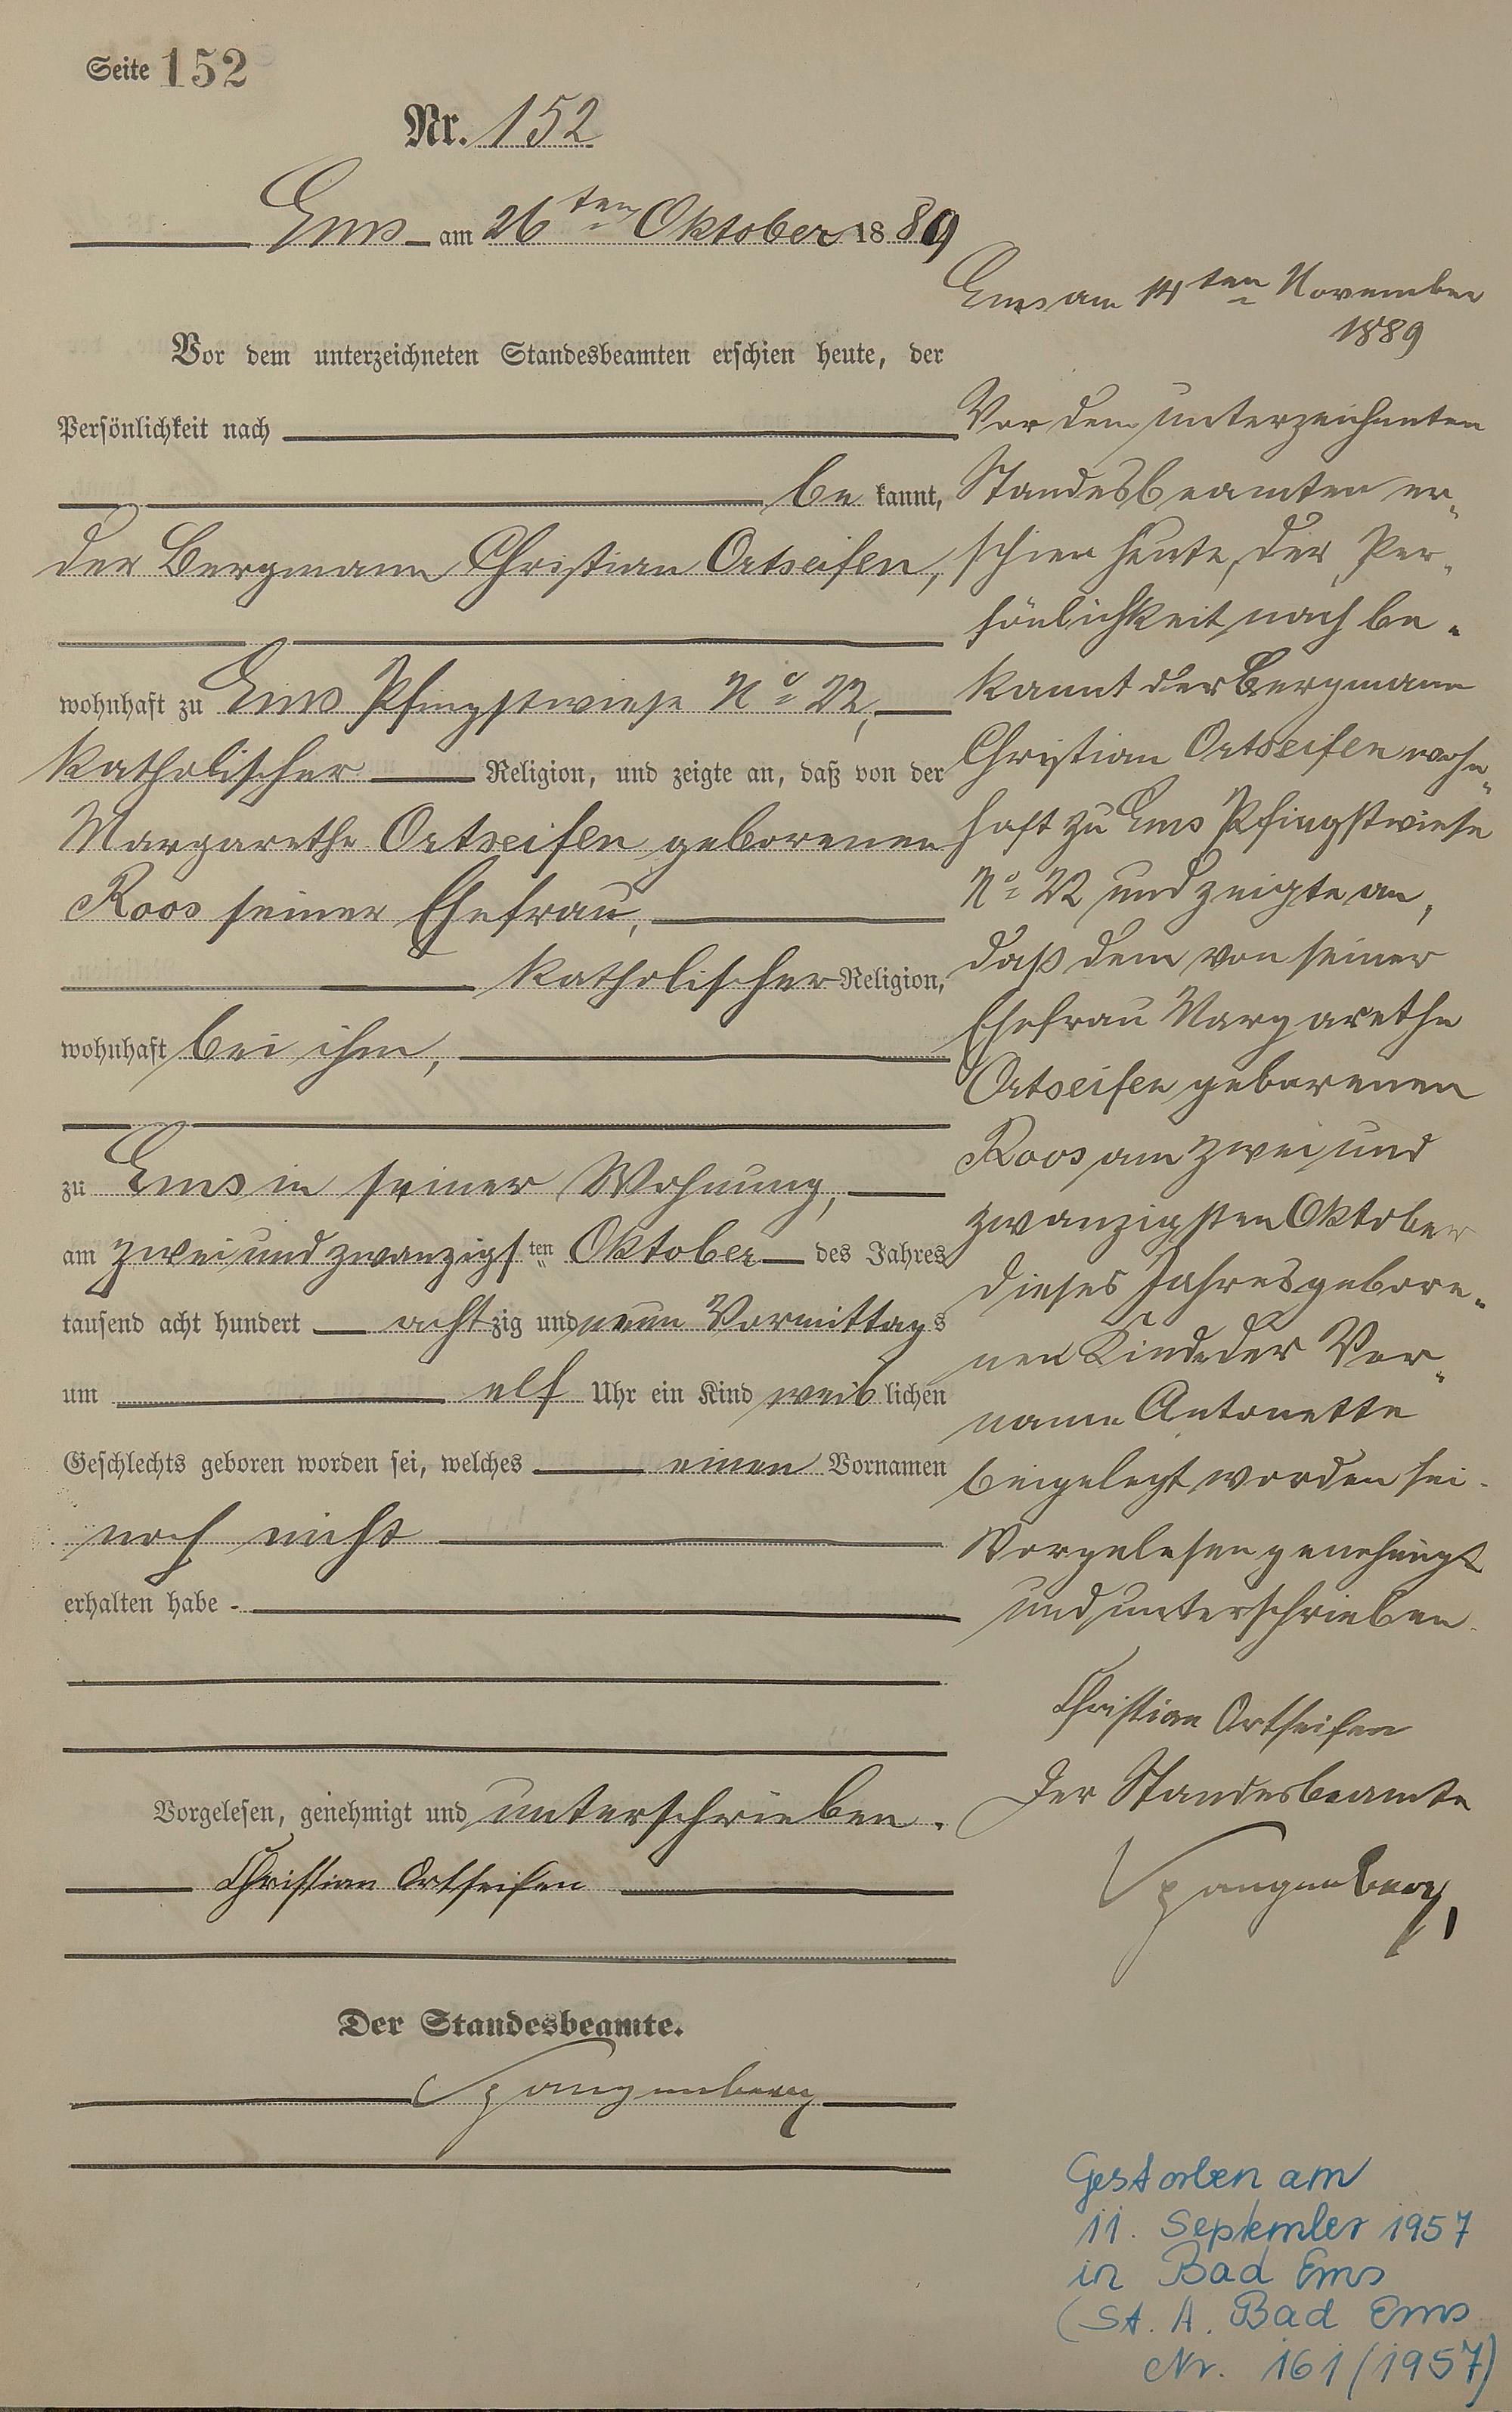 Seite 152
Nr. 152
Ems am 26ten Oktober 1889
Vor dem unterzeichneten Standesbeamten erschien heute, der
Persönlichkeit nach
be kannt,
der Bergmann Christian Ortseifen,
wohnhaft zu Ems Pfingstwiese No 22,
katholischer Religion, und zeigte an, daß von der
Margarethe Ortseifen geborenen
Roos seiner Ehefrau,
katholischer Religion,
wohnhaft bei ihm,
zu Ems in seiner Wohnung,
am zwei und zwanzigsten Oktober des Jahres
tausend acht hundert achtzig und neun Vormittags
um elf Uhr ein Kind weiblichen
Geschlechts geboren worden sei, welches einen Vornamen
noch nicht
erhalten habe.
Vorgelesen, genehmigt und unterschrieben.
Christian Ortseifen
Der Standesbeamte.
Spangenberg
Ems am 14ten November
1889
Vor dem unterzeichneten
Standesbeamten er-
schien heute, der Per-
sönlichkeit nach be-
kannt der Bergmann
Christian Ortseifen wohn-
haft zu Ems Pfingstwiese
No 22 und zeigte an,
daß dem von seiner
Ehefrau Margarethe
Ortseifen geborenen
Roos am zwei und
zwanzigsten Oktober
dieses Jahres gebore-
nen Kinde der Vor-
name Antonette
beigelegt worden sei.
Vorgelesen genehmigt
und unterschrieben.
Christian Ortseifen
Der Standesbeamte
Spangenberg
Gestorben am
11. September 1957
in Bad Ems
(St. A. Bad Ems
Nr. 161/1957)